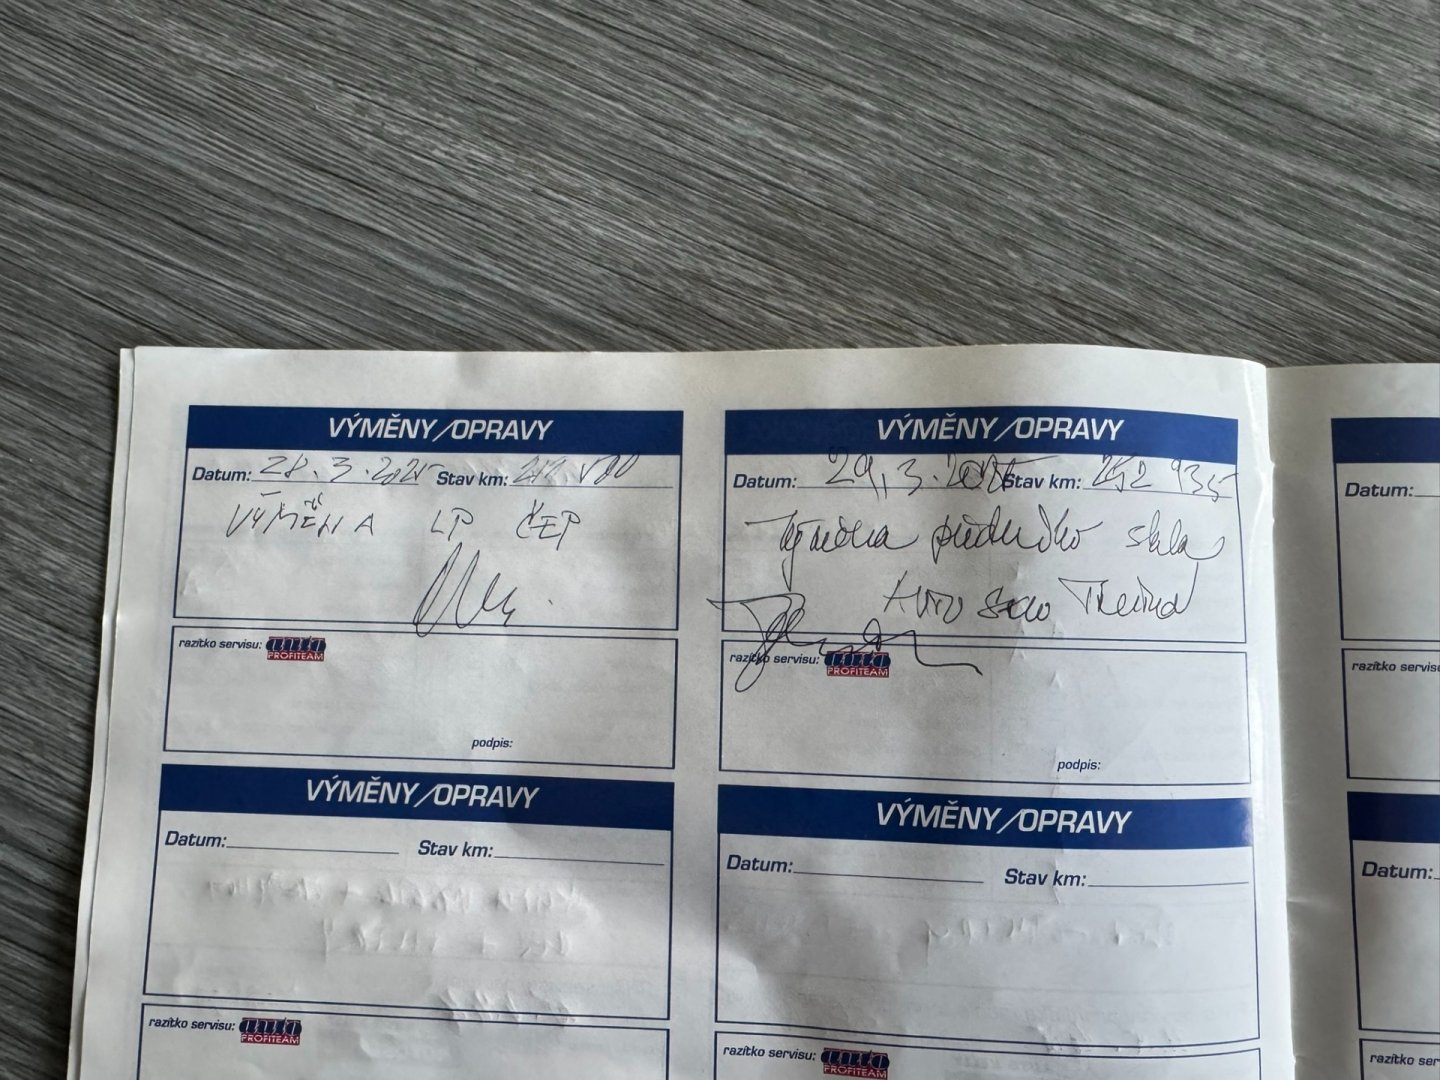 VÝMĚNY/OPRAVY
Datum: 28.3.2025 Stav km:
VÝMĚNA LP ČEP
razítko servisu: auto PROFITEAM
podpis:
VÝMĚNY/OPRAVY
Datum: 29.3.2025 Stav km: 252 935
Výměna předního skla
Auto sklo
razítko servisu: auto PROFITEAM
podpis:
VÝMĚNY/OPRAVY
Datum: Stav km:
razítko servisu: auto PROFITEAM
VÝMĚNY/OPRAVY
Datum: Stav km:
razítko servisu: auto PROFITEAM
Datum:
razítko
Datum:
razítko